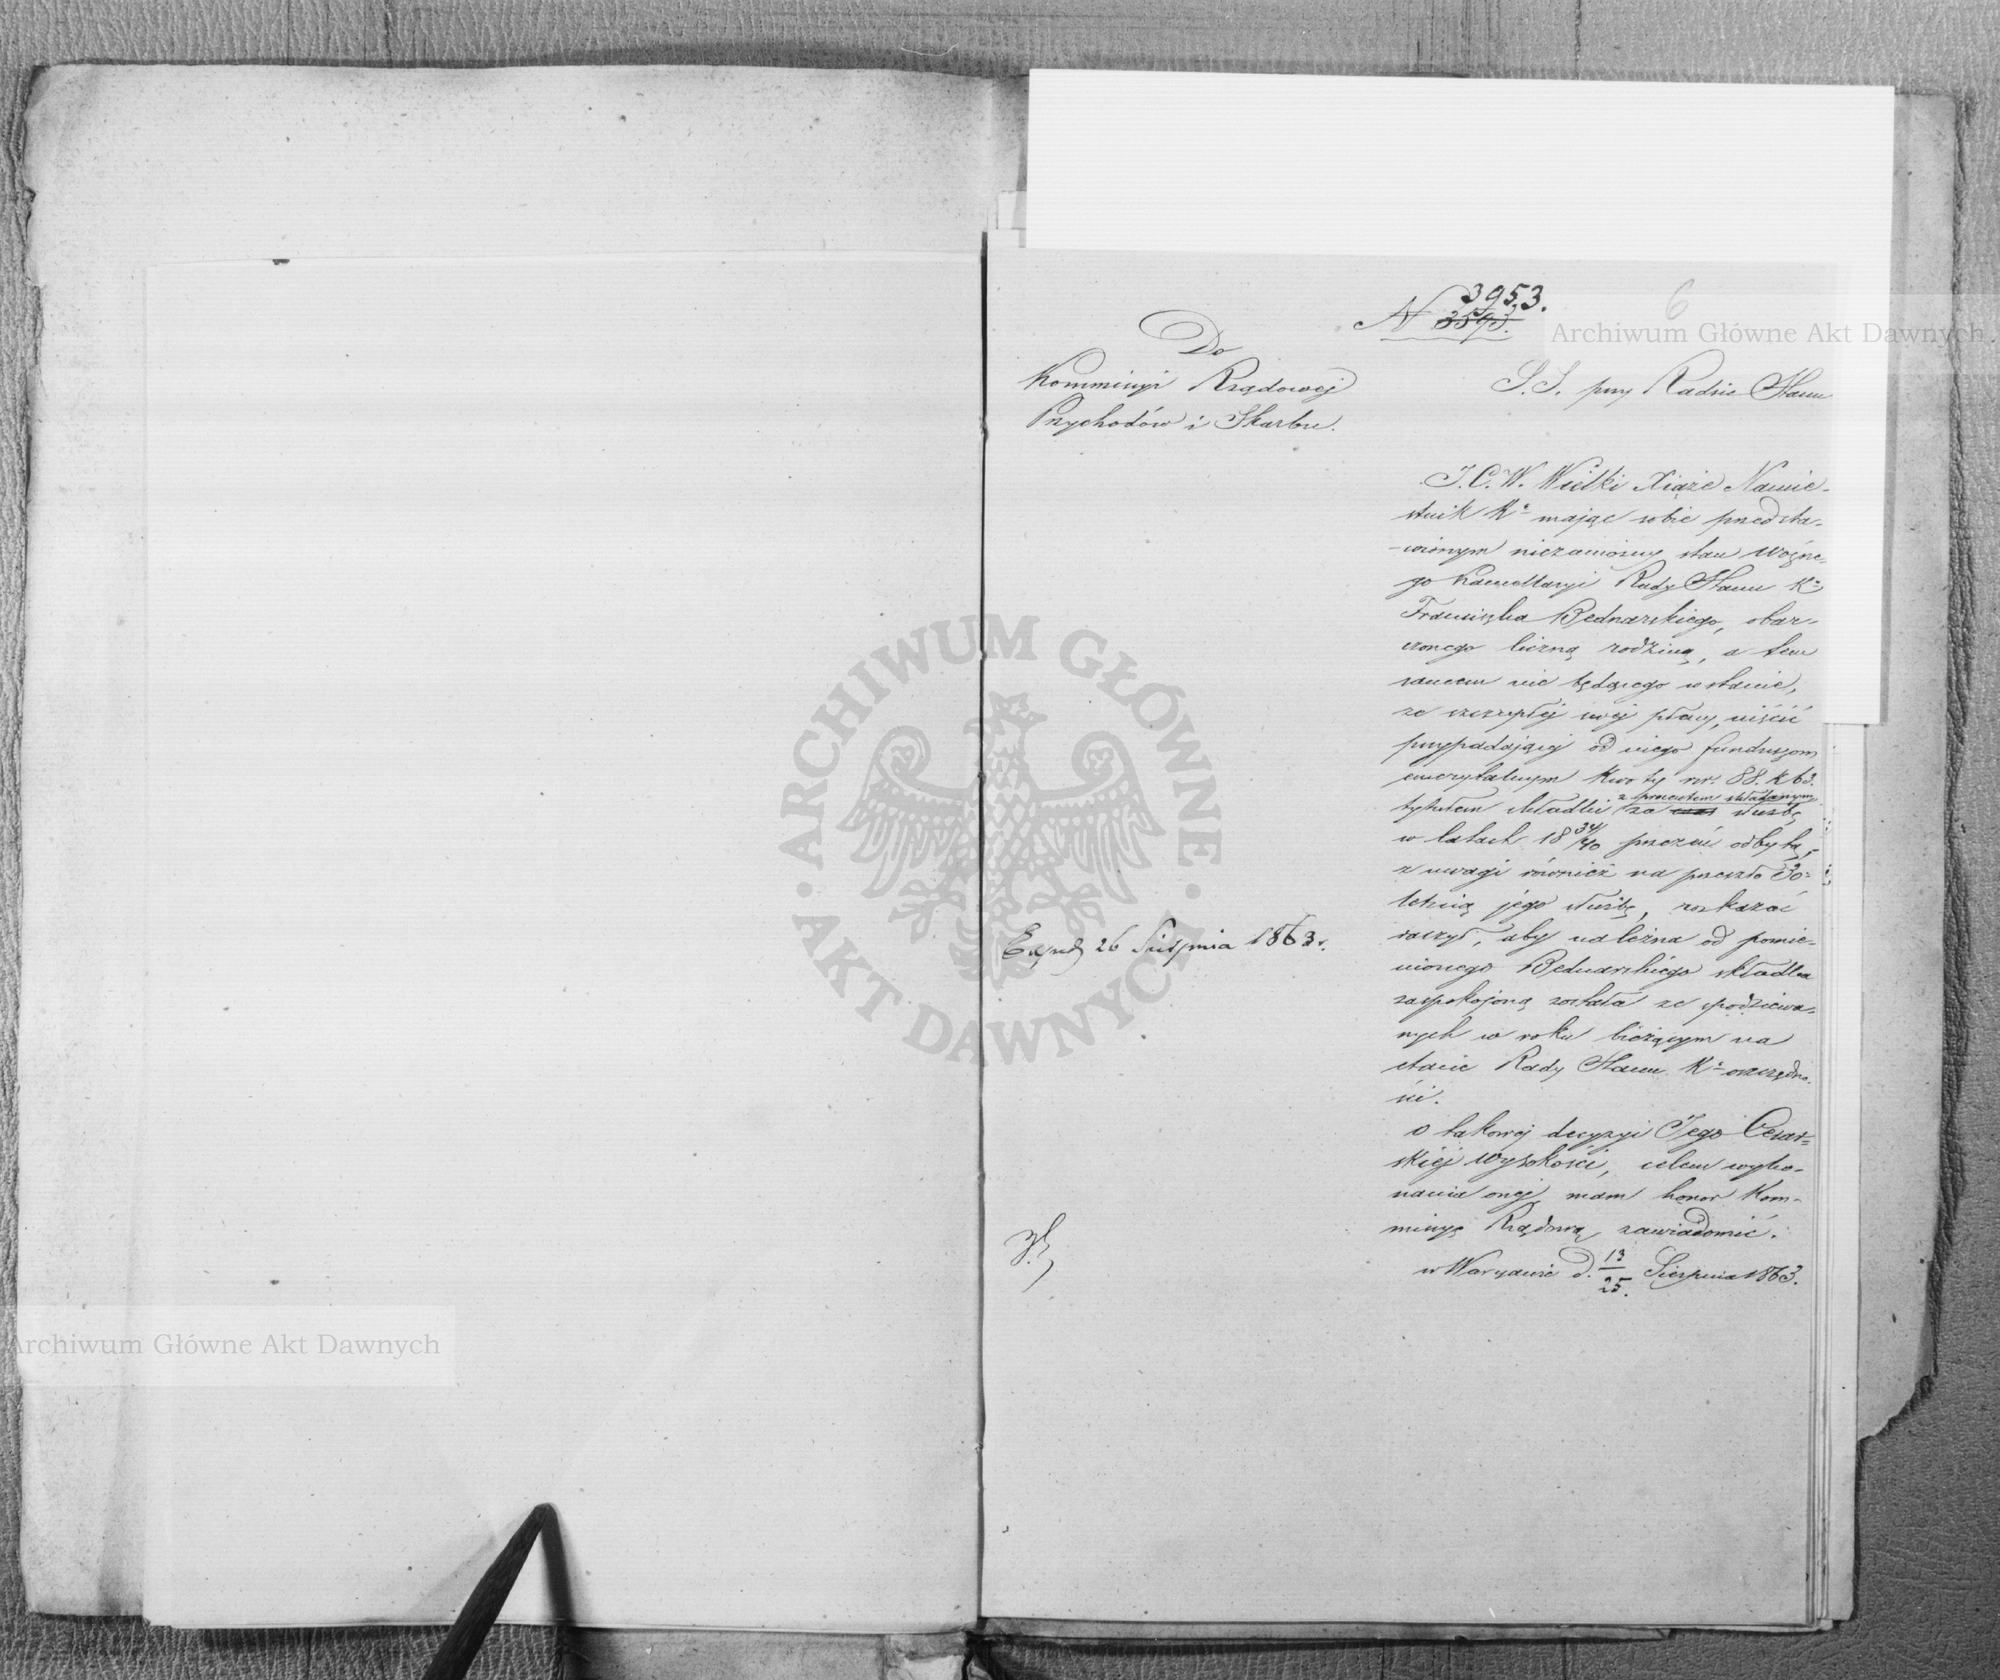 3953.
N 3593.
6
Archiwum Główne Akt Dawnych
Do
Kommissyi Rządowej
Przychodów i Skarbu.
S. S. przy Radzie Stanu
J. C. W. Wielki Xiąże Namie-
stnik Kª mając sobie przedsta-
-wionym niezamożny stan Woźne-
go Kancellaryi Rady Stanu Kª
Franciszka Bednarskiego, obar-
czonego liczną rodziną, a tem
samem nie będącego w stanie,
ze szczupłej swej płacy, uiścić
przypadającej od niego funduszom
emerytalnym kwoty rsr. 88. k 63.
z procentem składanym
tytułem składki za służbę
w latach 18 34/40 przezeń odbytą,
z uwagi również na przeszło 30-
letnią jego służbę, rozkazać
raczył, aby należna od pomie-
nionego Bednarskiego składka
zaspokojoną została ze spodziewa-
nych w roku bieżącym na
etacie Rady Stanu Kª oszczędno-
ści.
Exped 26 Sierpnia 1863 r.
O takowej decyzyi Jego Cesar-
skiej Wysokości, celem wyko-
nania onej, mam honor Kom-
missyę Rządową zawiadomić.
w Warszawie d. 13/25. Sierpnia 1863.
ARCHIWUM GŁÓWNE
AKT DAWNYCH
Archiwum Główne Akt Dawnych